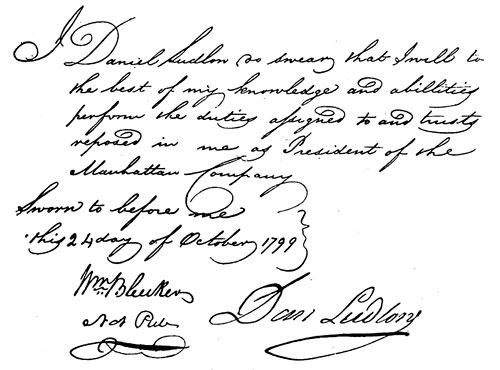 I Daniel Ludlow do swear that I will to
the best of my knowledge and abillities
perform the duties assigned to and trusts
reposed in me as President of the
Manhattan Company
Sworn to before me
this 24 day of October 1799
Wm Bleecker
Not Pub
Dan Ludlow